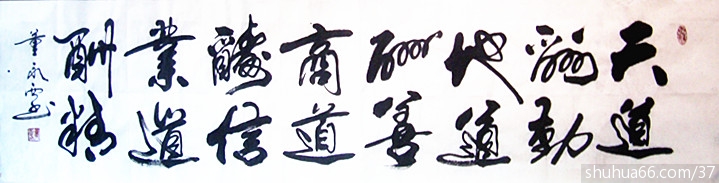 天道
酬勤
地道
酬善
商道
醻信
業道
酬精
shuhua66.com/37